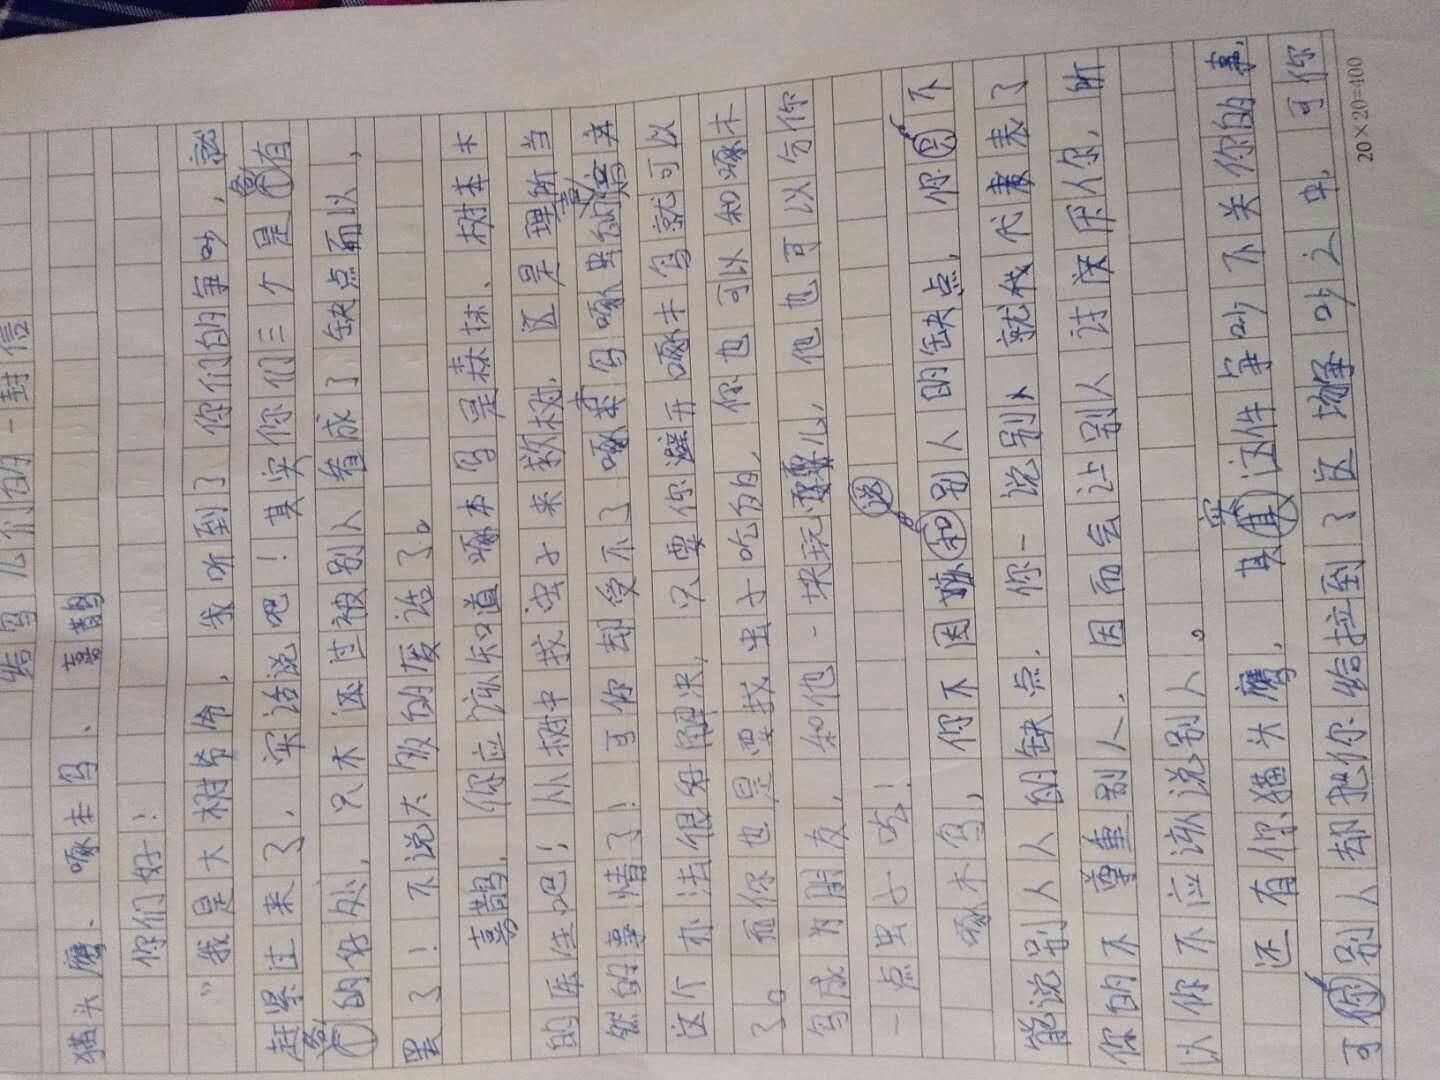 给鸟儿们的一封信
猫头鹰、啄木鸟、喜鹊
你们好！
“我是大树爷爷，我听到了你们的争吵，就
赶紧过来了，实话说吧！其实你们三个是各有
各的好处，只不过被别人看成了缺点而以，
罢了！不说大伙的废话了。
喜鹊，你应该知道啄木鸟是森林、树木
的医生吧！从树中找虫子来救树，这是理所当
然的事情了！可你却受不了啄木鸟啄虫的声音
这个办法很好解决，只要你避开啄木鸟就可以
了。而你也是要找虫子吃的，你也可以和啄木
鸟成为朋友，和他一块玩耍儿，他也可以分你
一点虫子吃！
啄木鸟，你不因说别人的缺点，你不
能说别人人的缺点．你一说别人就代表了
你的不尊重别人．因而会让别人讨厌你，所
以你不应该说别人。
还有你猫头鹰，其实这件争吵不关你的事，
可别人却把你给拉到了这场争吵之中，可你
20×20=400